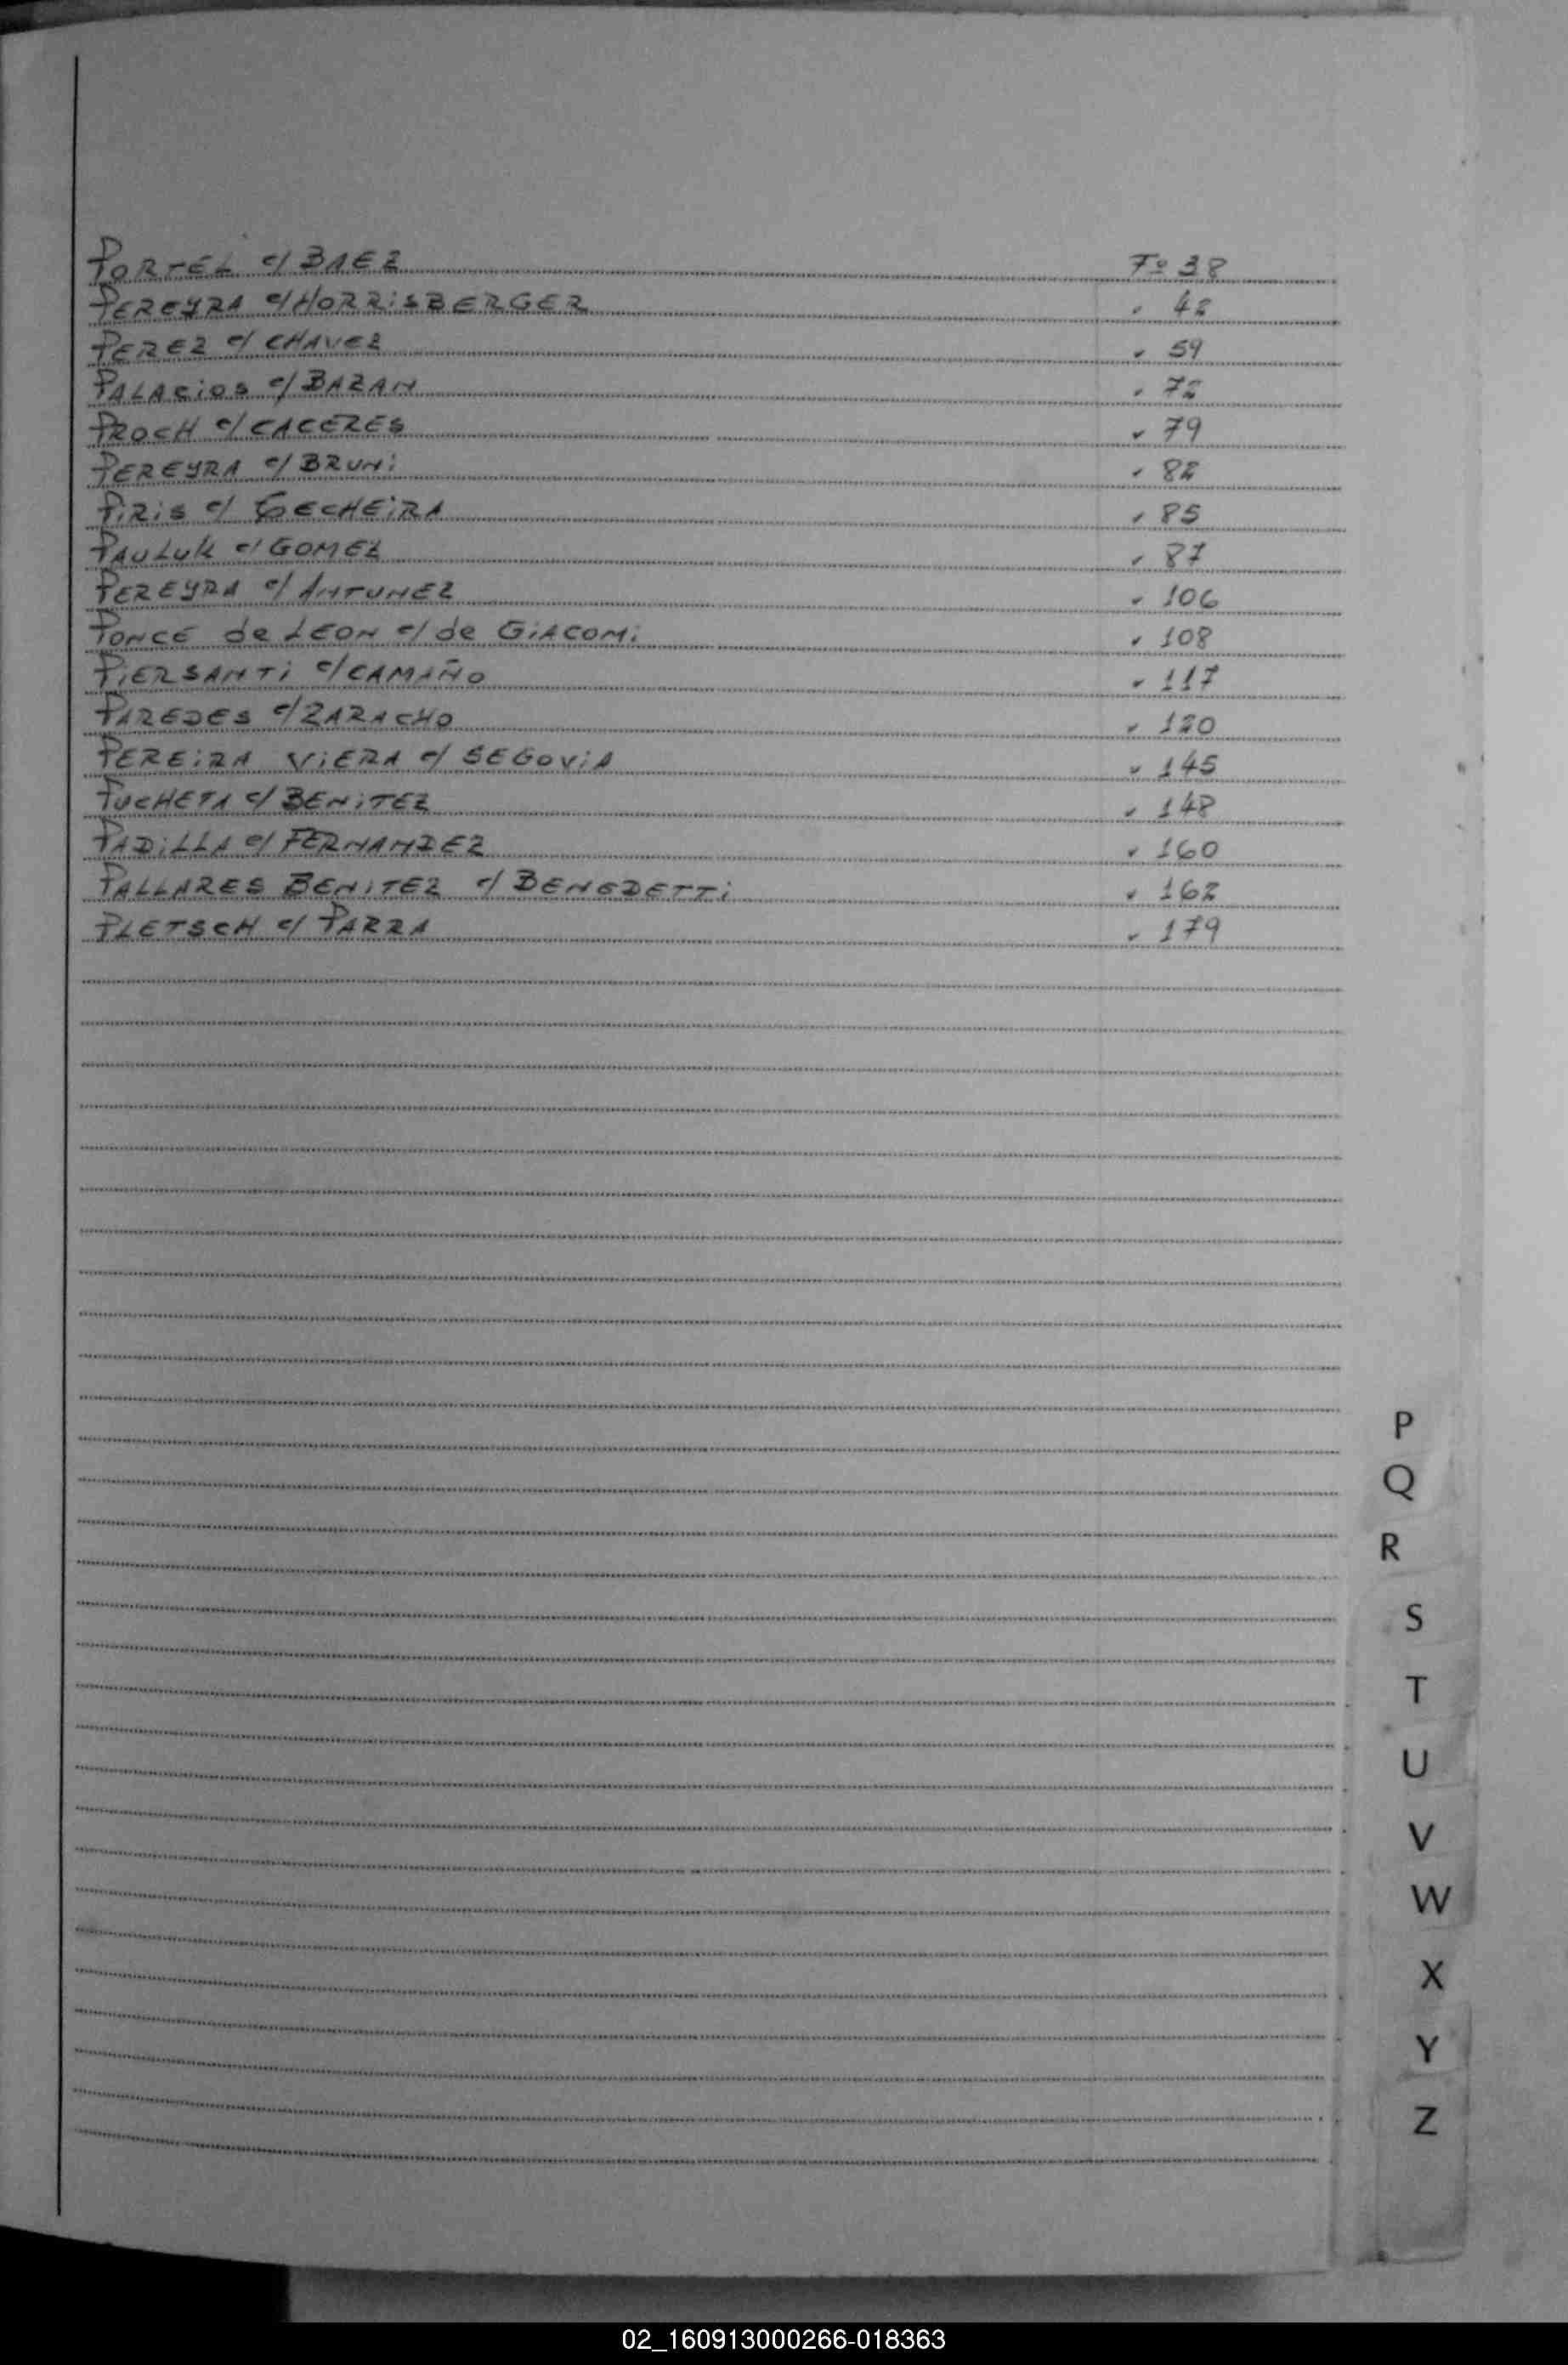 PORTEL c/ BAEZ Fº 38
PEREYRA c/ HORRISBERGER " 42
PEREZ c/ CHAVEZ " 59
PALACIOS c/ BAZAN " 72
PROCH c/ CACERES " 79
PEREYRA c/ BRUNi " 82
PiRiS c/ GECHEiRA " 85
PAULUK c/ GOMEZ " 87
PEREYRA c/ ANTUNEZ " 106
PONCE de LEON c/ de GiACOMi " 108
PiERSANTi c/ CAMAÑO " 117
PAREDES c/ ZARACHO " 120
PEREiRA ViERA c/ SEGOViA " 145
PUCHETA c/ BENiTEZ " 148
PADiLLA c/ FERNANDEZ " 160
PALLARES BENiTEZ c/ BENEDETTi " 162
PLETSCH c/ PARRA " 179
P
Q
R
S
T
U
V
W
X
Y
Z
02_160913000266-018363